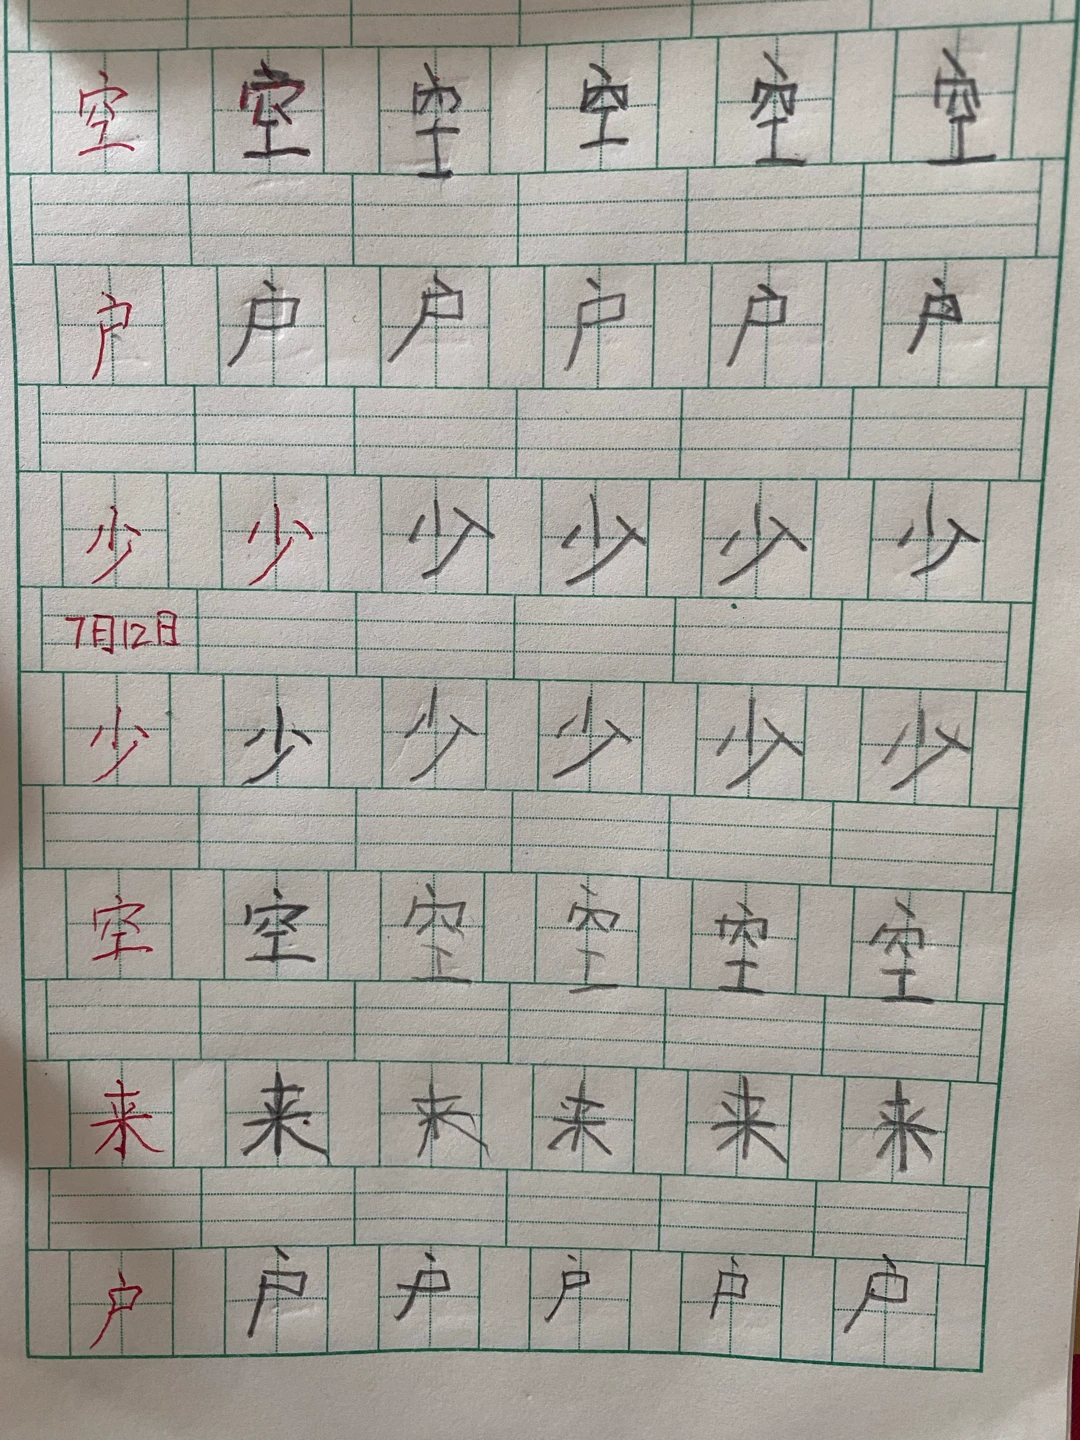 空 空 空 空 空 空
户 户 户 户 户 户
少 少 少 少 少 少
7月12日
少 少 少 少 少 少
空 空 空 空 空 空
来 来 来 来 来 来
户 户 户 户 户 户